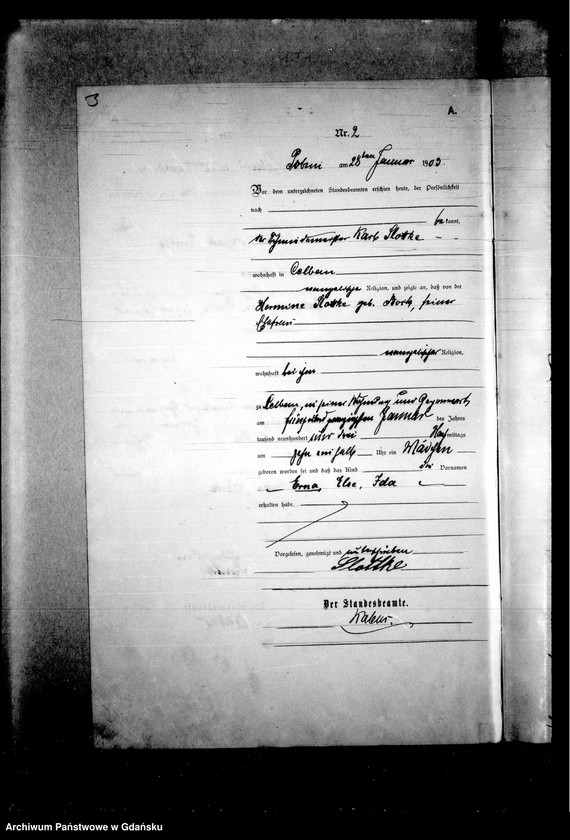 A.
Nr. 2
am 28ten Januar 1903.
Vor dem unterzeichneten Standesbeamten erschien heute, der Persönlichkeit
nach
bekannt,
der Schmiedemeister Karl Slottke
wohnhaft in
evangelischer Religion, und zeigte an, daß von der
Hermine Slottke geb. seiner
Ehefrau
evangelischer Religion,
wohnhaft bei ihm
zu in seiner Wohnung und Gegenwart
am fünfundzwanzigsten Januar des Jahres
tausend neunhundert und drei Nachmittags
um zehn ein halb Uhr ein Mädchen
geboren worden sei und daß das Kind die Vornamen
Erna, Else, Ida
erhalten habe.
Vorgelesen, genehmigt und unterschrieben
Slottke
Der Standesbeamte.
Archiwum Państwowe w Gdańsku